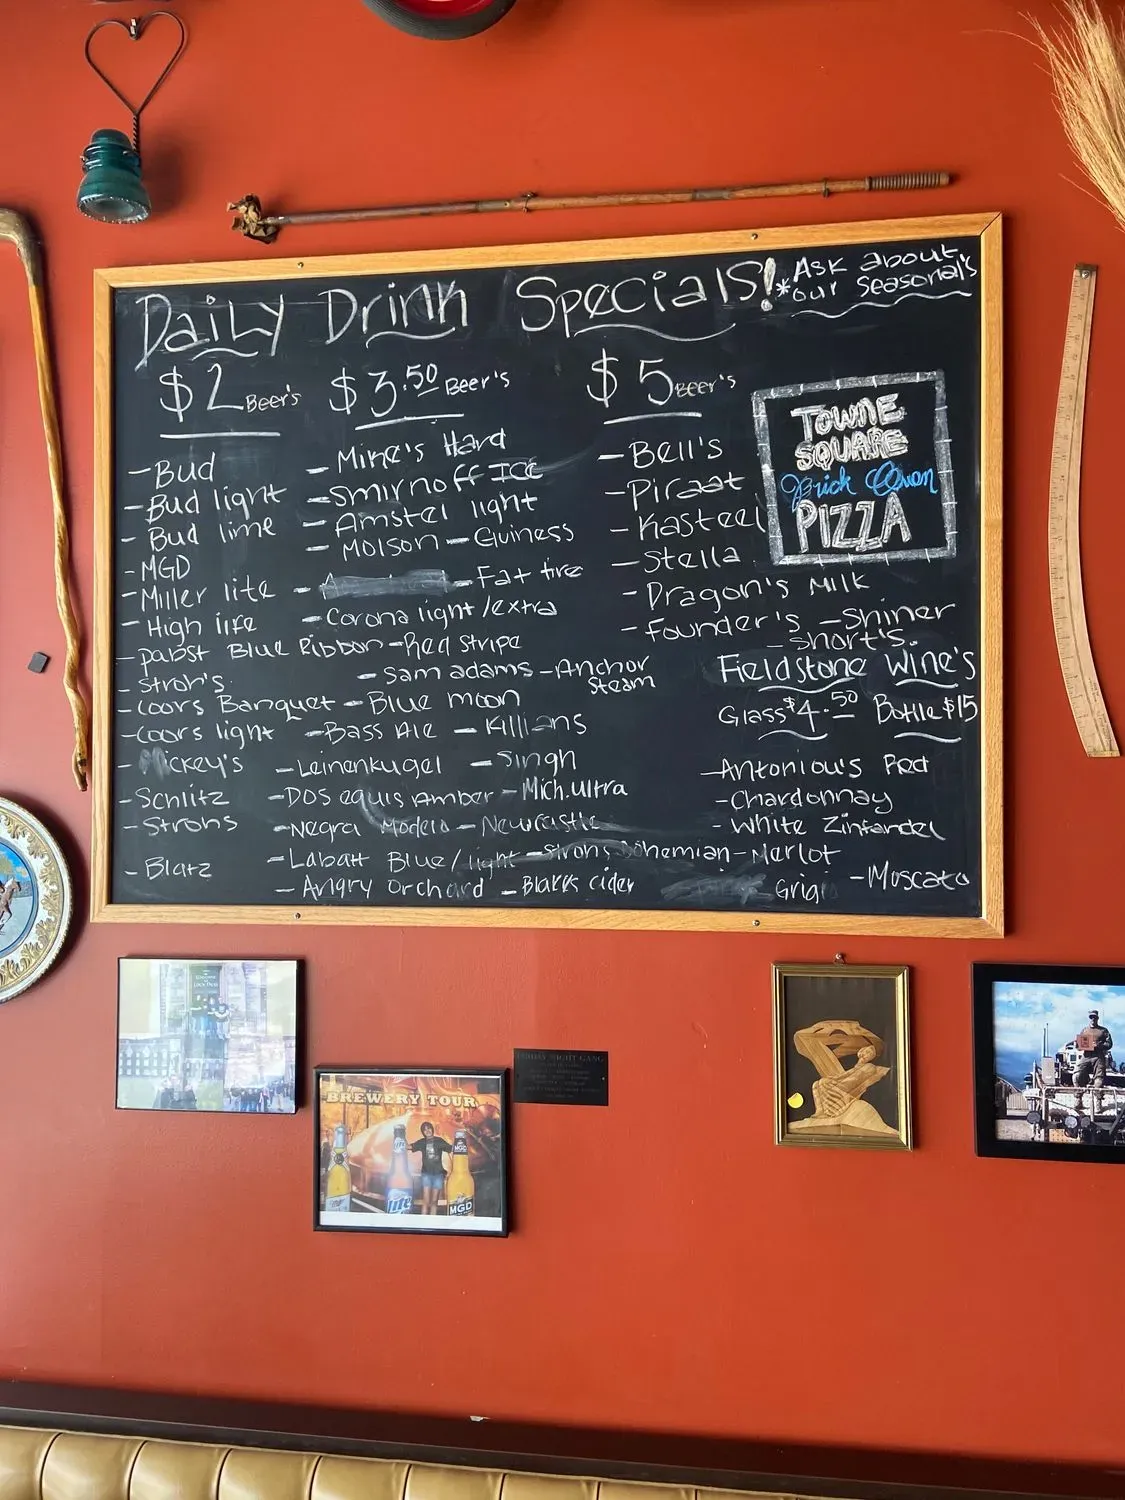 Daily Drink Specials!
*Ask about
our seasonal's
$2 Beer's
- Bud
- Bud light
- Bud lime
- MGD
- Miller lite
- High life
- Pabst Blue Ribbon
- Stroh's
- Coors Banquet
- Coors light
- Mickey's
- Schlitz
- Strohs
- Blatz
$3.50 Beer's
- Mike's Hard
- Smirnoff ICE
- Amstel light
- Molson - Guiness
- Fat tire
- Corona light/extra
- Red stripe
- Sam adams - Anchor
Steam
- Blue moon
- Bass Ale - Killians
- Leinenkugel - Singh
- Dos equis Amber - Mich.ultra
- Negra Modelo - Newcastle
- Labatt Blue/light - Strohs Bohemian
- Angry Orchard - Blakes cider
$5 Beer's
- Bell's
- Piraat
- Kasteel
- Stella
- Dragon's Milk
- Founder's - Shiner
- Short's.
TOWNE
SQUARE
Brick Oven
PIZZA
Fieldstone Wine's
Glass $4.50 Bottle $15
- Antoniou's Red
- Chardonnay
- White Zinfandel
- Merlot
- Moscato
BREWERY TOUR
Lite
MGD